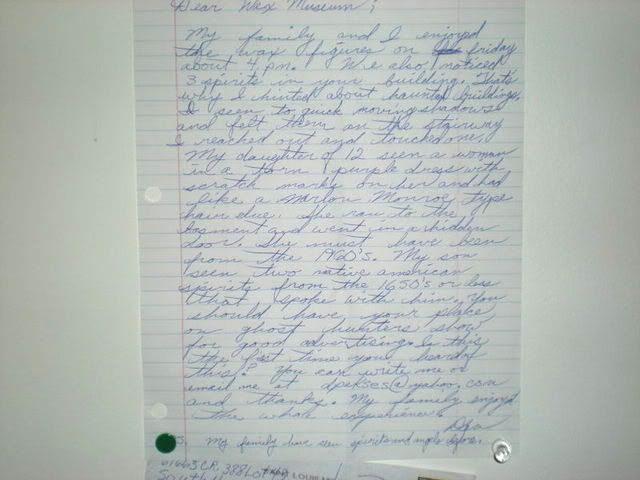 Dear Wax Museum;
My family and I enjoyed
the wax figures on friday
about 4 pm. We also noticed
3 spirits in your building. Thats
why I hinted about haunted buildings.
I seen to quick moving shadows
and felt them on the stairway
I reached out and touched one.
My daughter of 12 seen a woman
in a torn purple dress with
scratch marks on her and had
like a Marlon Monroe type
hair due. She ran to the
basment and went in a hidden
door. She must have been
from the 1960's. My son
seen two native american
spirits from the 1650's or less
that spoke with him. You
should have your place
on ghost hunters show
for good advertising. Is this
the first time you heard of
this? You can write me or
email me at dpekses@yahoo.com
and thanks. My family enjoyed
the whole experience.
My family have seen spirits and angels before.
61665 CR. 388 Lot
South